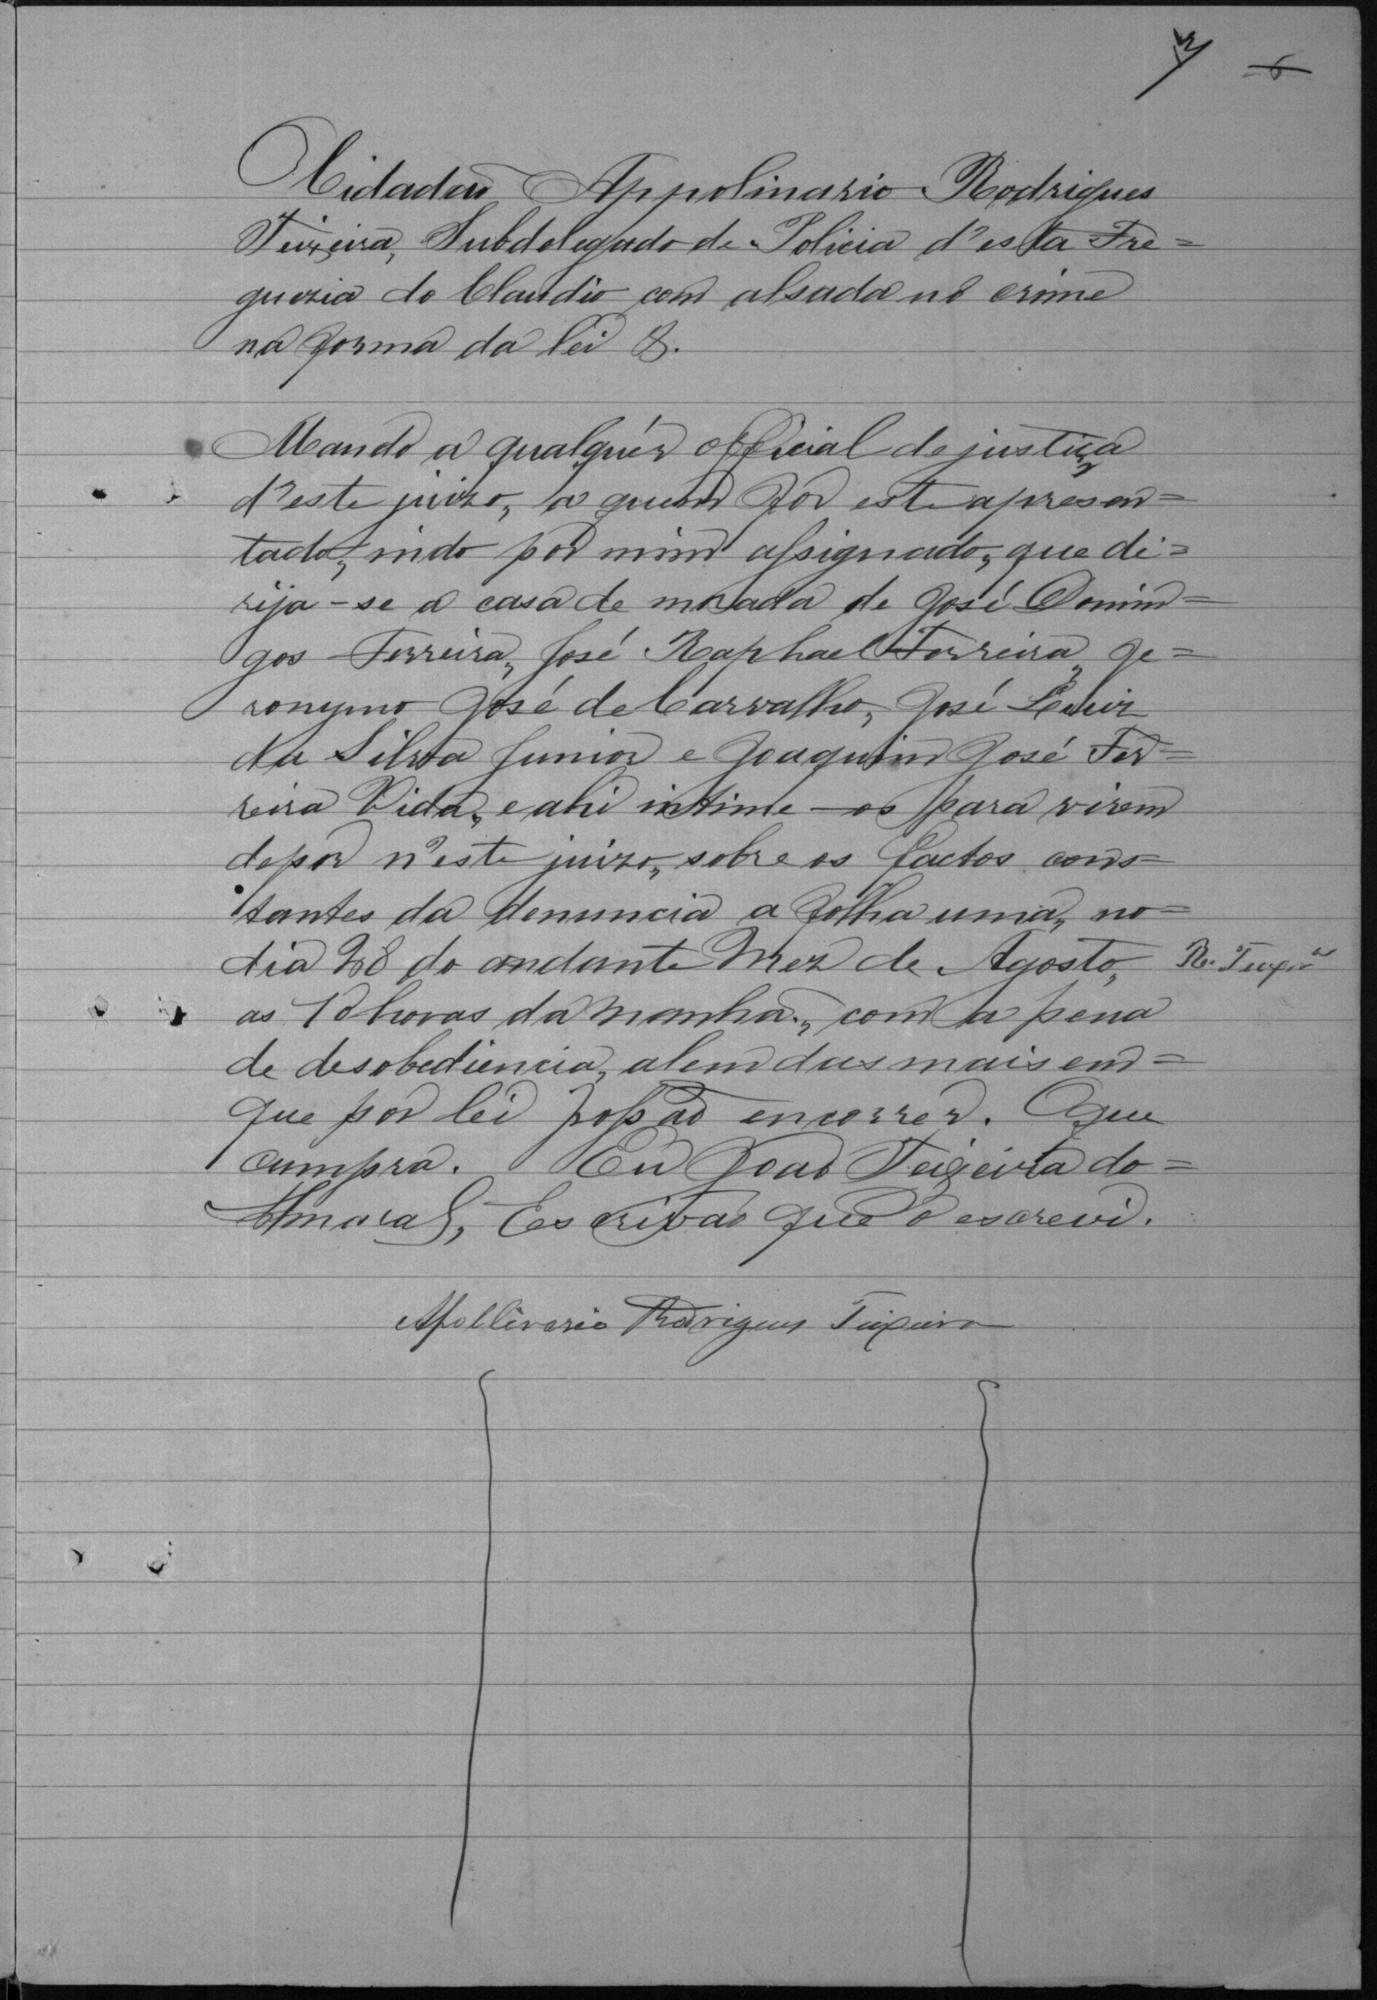 O Cidadão Appolinario Rodrigues
Teixeira, Subdelegado de Policia d'esta Fre=
guezia do Claudio com alsada no crime
na forma da lei &.
Mando a qualquér official de justiça
d'este juizo, a quem fôr este apresen=
tado, indo por mim assignado, que di=
rija-se a casa de morada de José Domin=
gos Ferreira, José Raphael Ferreira, Je=
ronymo José de Carvalho, José Luiz
da Silva Junior e Joaquim José Fer=
reira Vida, e ahi intime-os para virem
depor n'este juizo, sobre os factos cons=
tantes da denuncia a folha uma, no
dia 28 do andante Mez de Agosto, R. Teixrª
as 10 horas da manhã, com a pena
de desobediencia, alem das mais em=
que por lei possão encorrer. O que
cumpra. Eu João Teixeira do=
Amaral, Escrivão que o escrevi.
Apollinario Rodrigues Teixeira